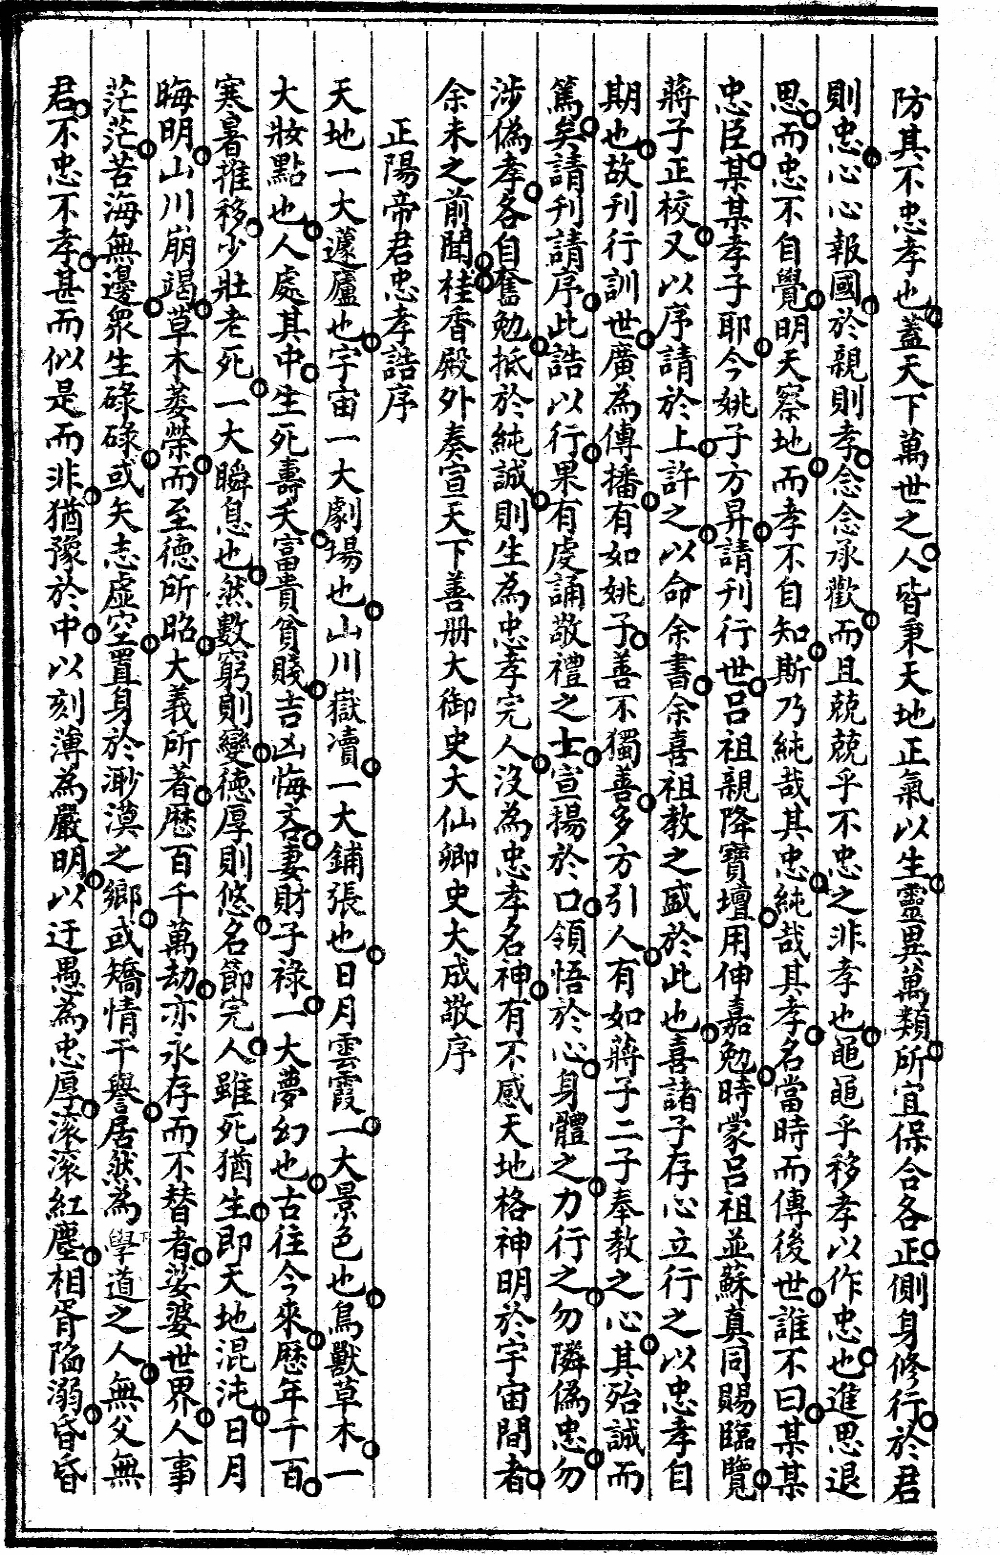 防其不忠孝也蓋天下萬世之人皆秉天地正氣以生靈異萬類所宜保合各正側身修行於君
則忠心心報國於親則孝念念承歡而且兢兢乎不忠之非孝也黽黽乎移孝以作忠也進思退
思而忠不自覺明天察地而孝不自知斯乃純哉其忠純哉其孝名當時而傳後世誰不曰某某
忠臣某某孝子耶今姚子方昇請刊行世呂祖親降寶壇用伸嘉勉時蒙呂祖並蘇真同賜臨覽
蔣子正校又以序請於上許之以命余書余喜祖教之盛於此也喜諸子存心立行之以忠孝自
期也故刊行訓世廣為傳播有如姚子善不獨善多方引人有如蔣子二子奉教之心其殆誠而
篤矣請刊請序此誥以行果有虔誦敬禮之士宣揚於口領悟於心身體之力行之勿隣偽忠勿
涉偽孝各自奮勉抵於純誠則生為忠孝完人沒為忠孝名神有不感天地格神明於宇宙間者
余未之前聞桂香殿外奏宣天下善册大御史大仙卿史大成敬序
正陽帝君忠孝誥序
天地一大蘧廬也宇宙一大劇場也山川嶽凟一大鋪張也日月雲霞一大景色也鳥獸草木一
大妝點也人處其中生死壽夭富貴貧賤吉凶悔吝妻財子祿一大夢幻也古往今來歷年千百
寒暑推移少壯老死一大瞬息也然數窮則變德厚則悠名節完人雖死猶生即天地混沌日月
晦明山川崩竭草木萎榮而至德所昭大義所著歷百千萬劫亦永存而不替者娑婆世界人事
茫茫苦海無邊眾生碌碌或矢志虛空置身於渺漠之鄉或矯情干譽居然為學道之人無父無
君不忠不孝甚而似是而非猶豫於中以刻薄為嚴明以迂愚為忠厚滚滚紅塵相胥陷溺昏昏